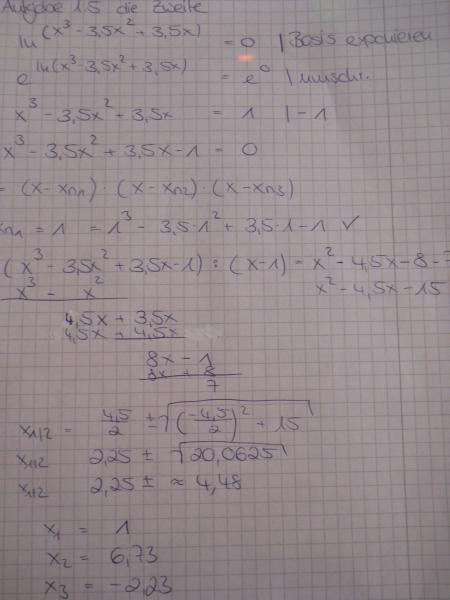 Aufgabe 1.5 die zweite
ln(x³ - 3,5x² + 3,5x) = 0 | Basis exponieren
e^ln(x³ - 3,5x² + 3,5x) = e⁰ | umschr.
x³ - 3,5x² + 3,5x = 1 | - 1
x³ - 3,5x² + 3,5x - 1 = 0
= (x - xn1) · (x - xn2) · (x - xn3)
xn1 = 1 = 1³ - 3,5·1² + 3,5·1 - 1 ✓
(x³ - 3,5x² + 3,5x - 1) : (x - 1) = x² - 4,5x - 8 - 7
x³ - x² x² - 4,5x - 15
4,5x + 3,5x
4,5x + 4,5x
8x - 1
8x + 8
7
x1/2 = 4,5/2 ± √((-4,5/2)² + 15)
x1/2 2,25 ± √20,0625
x1/2 2,25 ± ≈ 4,48
x₁ = 1
x₂ = 6,73
x₃ = -2,23